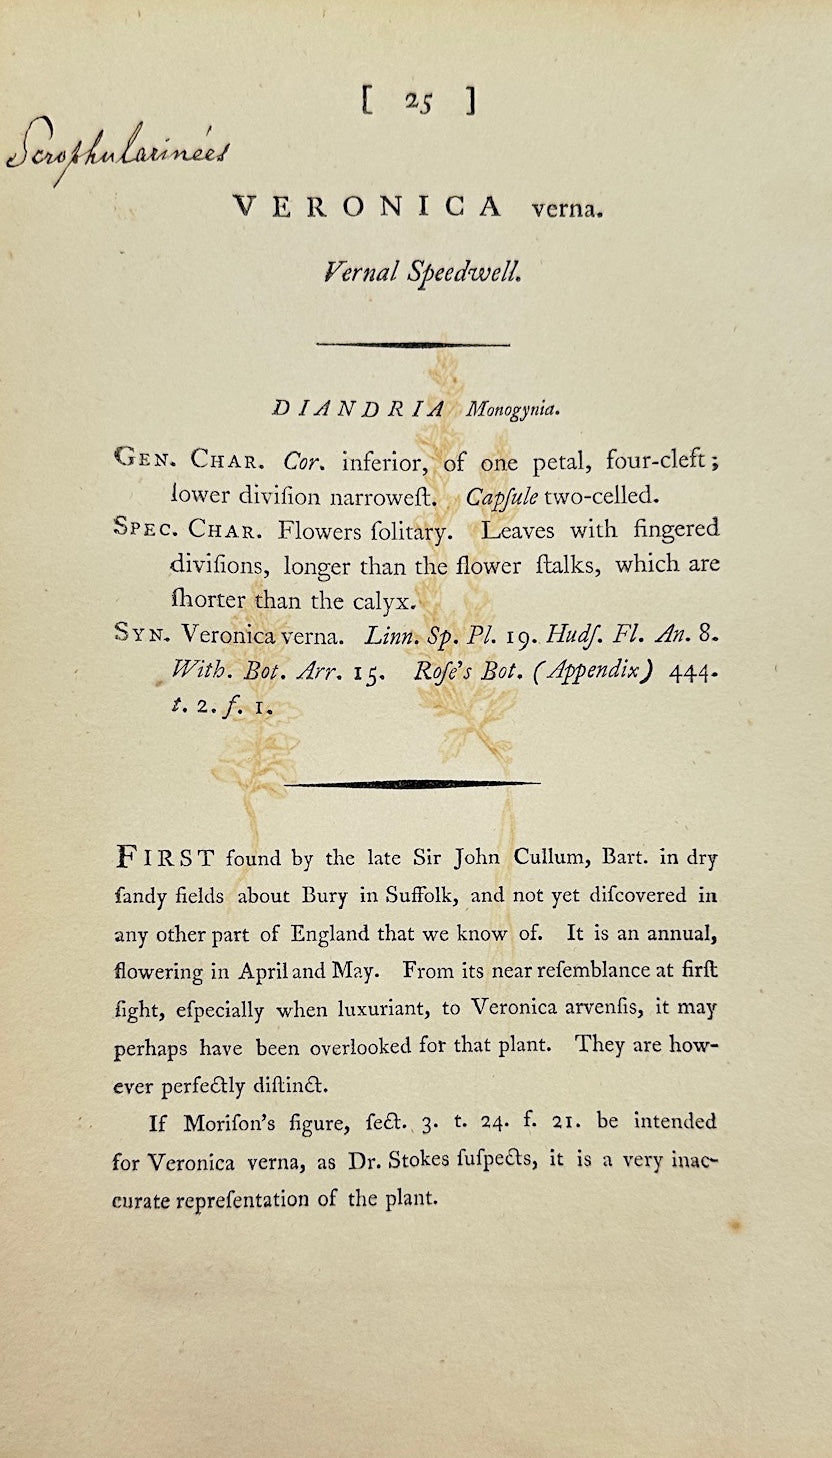 [ 25 ]
Scrophularinées
VERONICA verna.
Vernal Speedwell.
DIANDRIA Monogynia.
GEN. CHAR. Cor. inferior, of one petal, four-cleft;
lower diviſion narroweſt. Capſule two-celled.
SPEC. CHAR. Flowers ſolitary. Leaves with fingered
diviſions, longer than the flower ſtalks, which are
ſhorter than the calyx.
SYN. Veronica verna. Linn. Sp. Pl. 19. Hudſ. Fl. An. 8.
With. Bot. Arr. 15. Roſe's Bot. (Appendix) 444.
t. 2. f. 1.
FIRST found by the late Sir John Cullum, Bart. in dry
ſandy fields about Bury in Suffolk, and not yet diſcovered in
any other part of England that we know of. It is an annual,
flowering in April and May. From its near reſemblance at firſt
ſight, eſpecially when luxuriant, to Veronica arvenſis, it may
perhaps have been overlooked for that plant. They are how-
ever perfectly diſtinct.
If Moriſon's figure, ſect. 3. t. 24. f. 21. be intended
for Veronica verna, as Dr. Stokes ſuſpects, it is a very inac-
curate repreſentation of the plant.